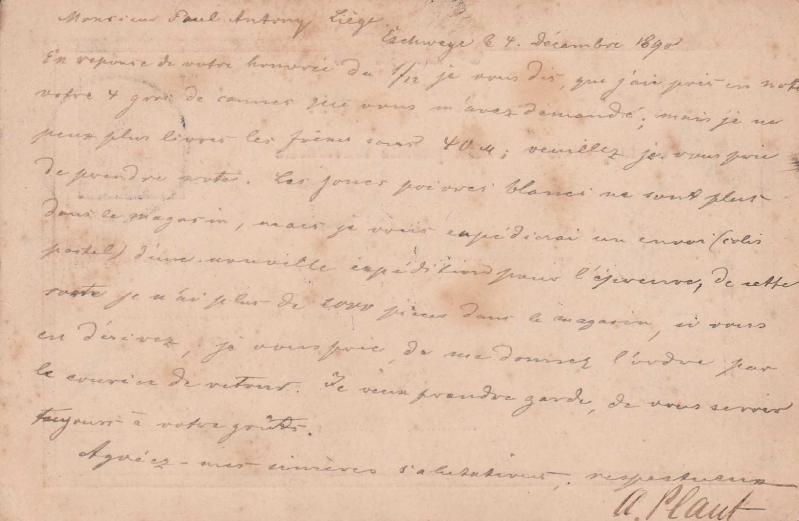 Monsieur Paul Antony Liége.
Eschwege le 4. Décembre 1890
En reponse de votre honorée du 1/12 je vous dis, que j'aie pris en note
votre 4 gros de cannes que vous m'avez demandé; mais je ne
peux plus livrer les frêne sous 40 M; veuillez je vous prie
de prendre note. Les joncs poivres blancs ne sont plus
dans le magasin, mais je vous expédierai un envoi (colis
postal) d'une nouvelle expédition pour l'épreuve, de cette
sorte je n'ai plus de 2000 pièces dans le magasin, si vous
en désirez, je vous prie, de me donnez l'ordre par
le courier de retour. Je veux prendre garde, de vous servir
toujours à votre goûts.
Agréez mes sincères salutations, respectueux
A. Plaut